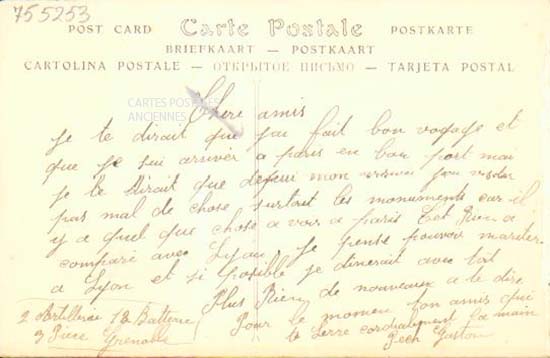 755253
POST CARD Carte Postale POSTKARTE
BRIEFKAART — POSTKAART
CARTOLINA POSTALE — ОТКРЫТОЕ ПИСЬМО — TARJETA POSTAL
CARTES POSTALES
ANCIENNES
Chere amis
je te dirait que jai fait bon voyage et
que je sui arriver a paris en bon port mai
je te dirait que depui mon
pas mal de chose surtout les monuments car il
y a quel que chose a voir a paris Cet Rien a
comparé avec Lyon, je pense pouvoir
a Lyon et si posible je dinerait avec toit
Plus Rien de nouveaux a te dire
Pour le momen ton amis qui
te serre cordialement la main
Pech Gaston
2 Artillerie 12 Batterie
3 Piece Grenoble